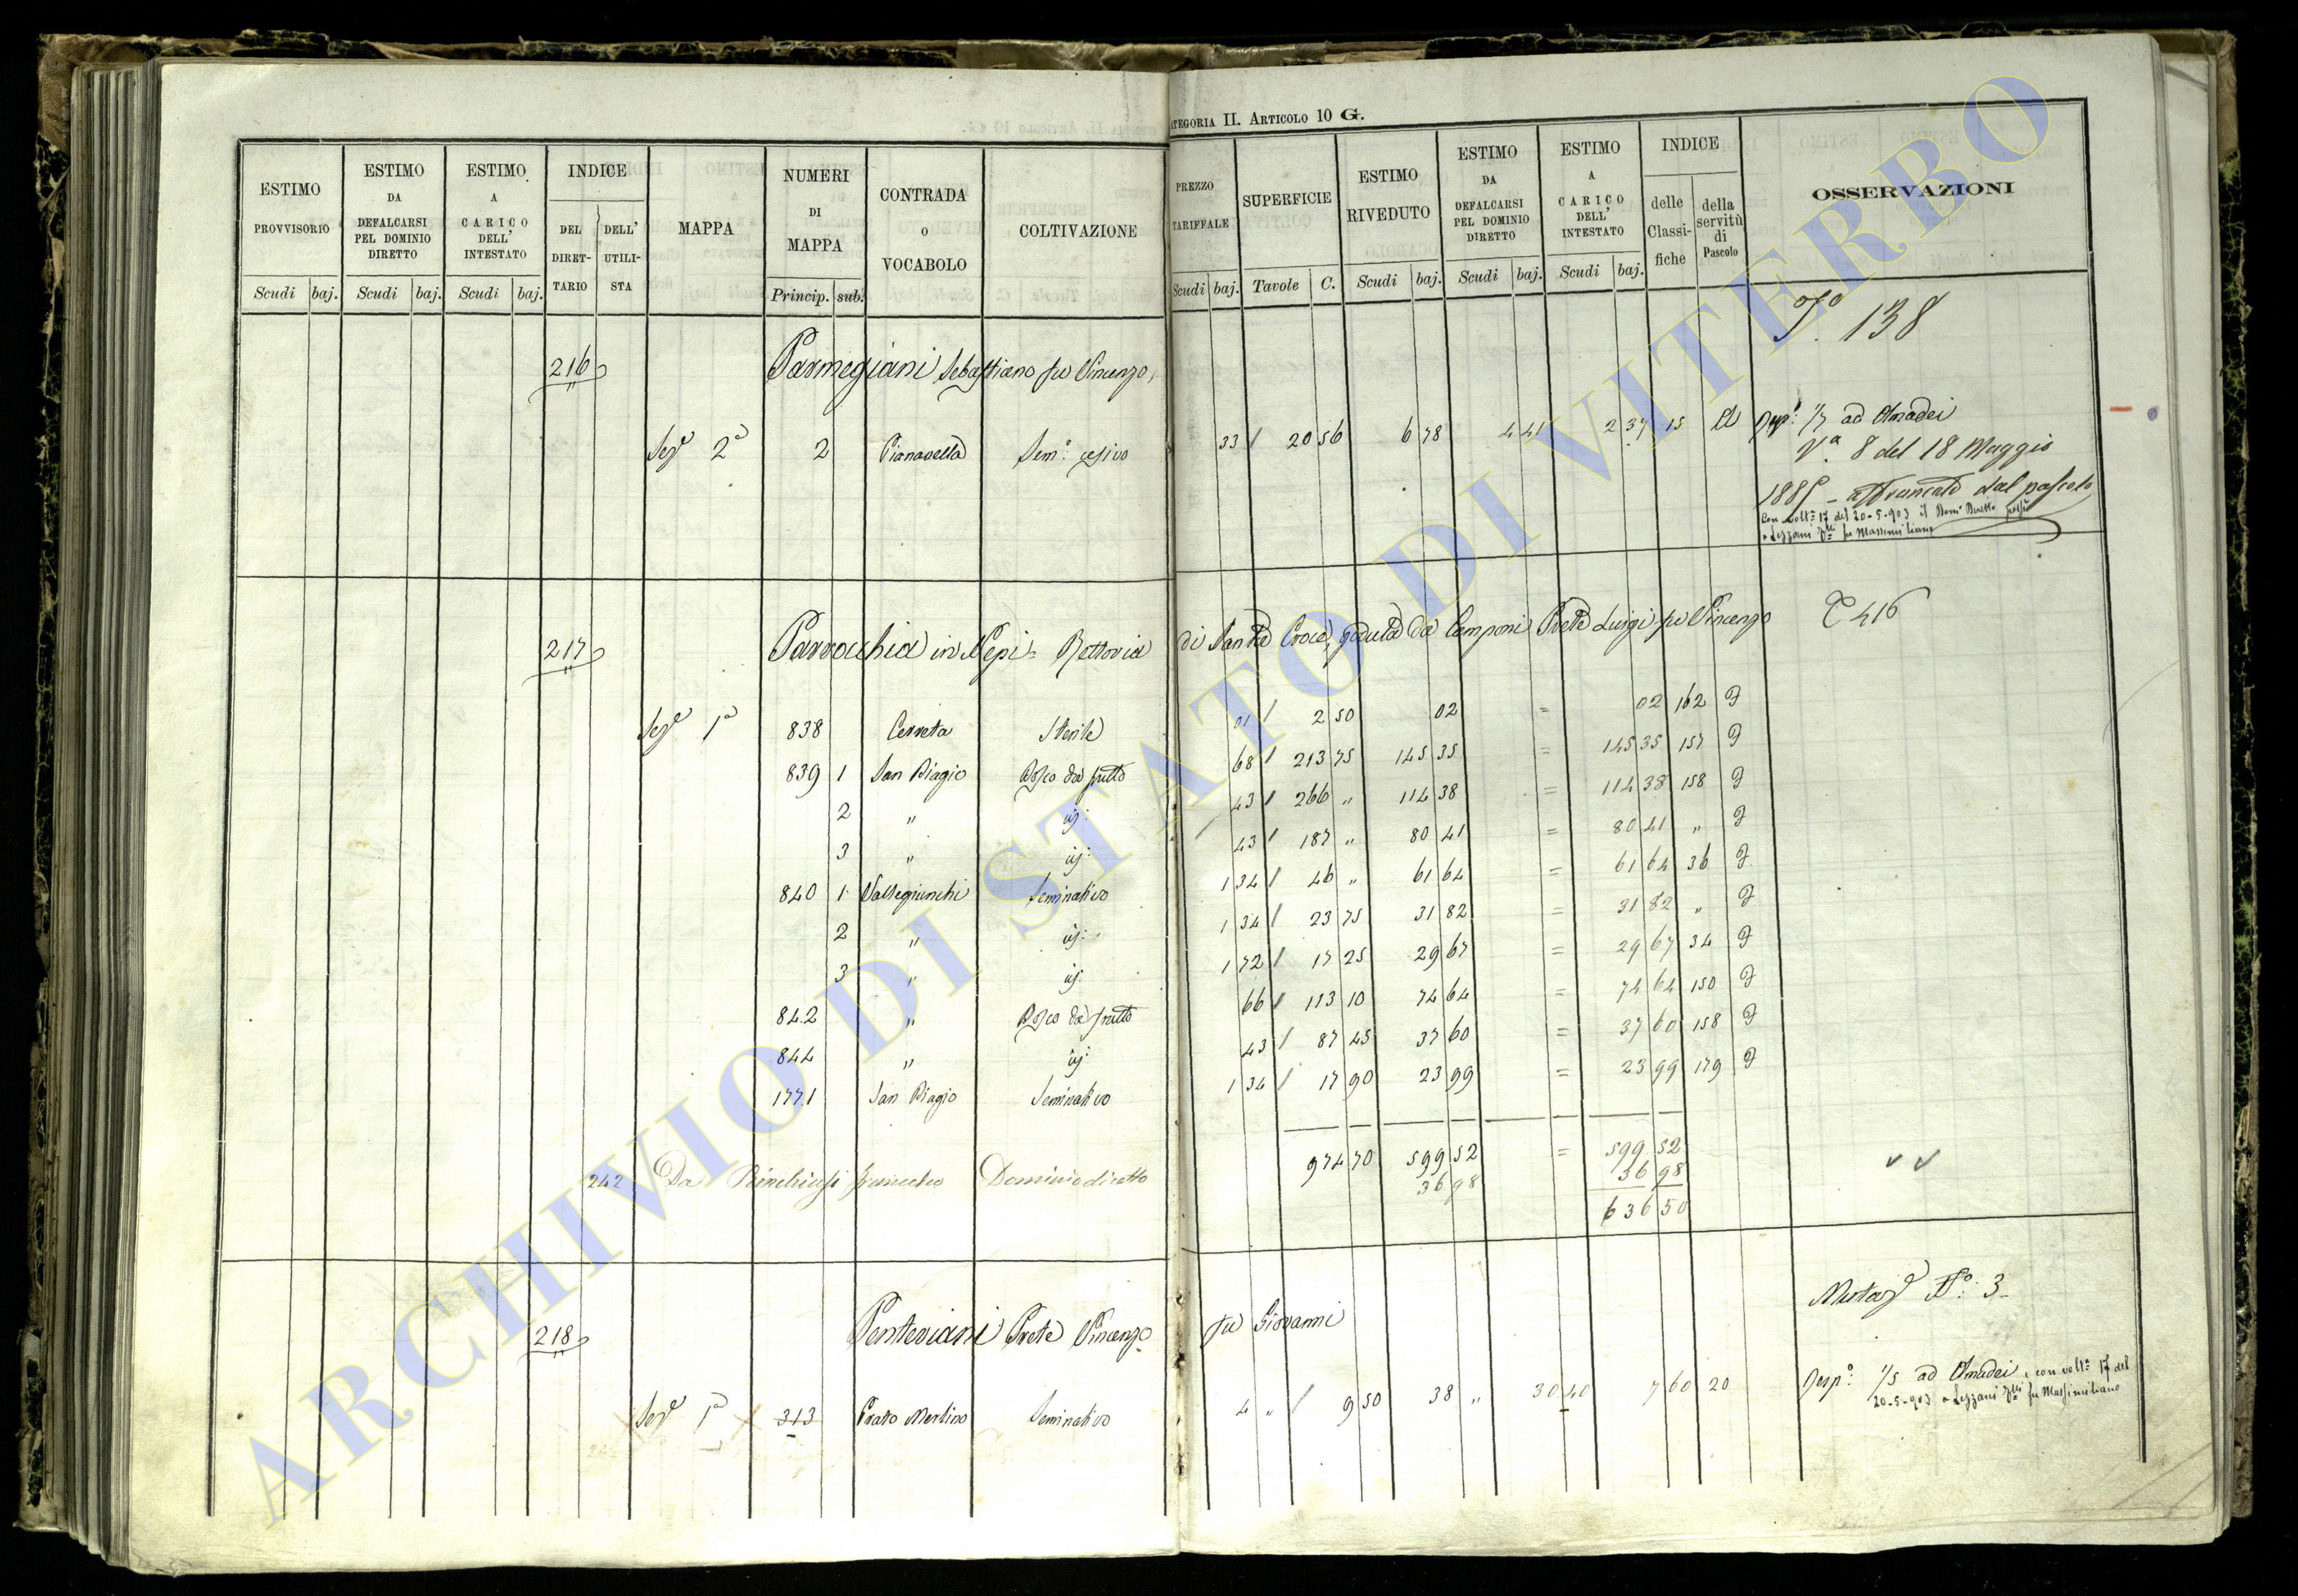 CATEGORIA II. ARTICOLO 10 G.
ESTIMO PROVVISORIO
ESTIMO DA DEFALCARSI PEL DOMINIO DIRETTO
ESTIMO A CARICO DELL' INTESTATO
INDICE
DEL DIRETTARIO
DELL' UTILISTA
MAPPA
NUMERI DI MAPPA
CONTRADA O VOCABOLO
COLTIVAZIONE
Scudi baj. Scudi baj. Scudi baj. Princip. sub.
PREZZO TARIFFALE
SUPERFICIE
ESTIMO RIVEDUTO
ESTIMO DA DEFALCARSI PEL DOMINIO DIRETTO
ESTIMO A CARICO DELL' INTESTATO
INDICE
delle Classifiche
della servitù di Pascolo
OSSERVAZIONI
Scudi baj. Tavole C. Scudi baj. Scudi baj. Scudi baj.
138
216 Parmegiani Sebastiano fu Vincenzo
Sez.e 2a 2 Pianavella Sem.o 33 20 56 6 78 4 41 2 37 15 ad Amadei
V.a 8 del 18 Maggio
188 affrancato dal pascolo
Con volt.a 17 del 20-5-903 il Dom.o Diretto
a Lezzani fu Massimiliano
217 Parrocchia in Nepi = Rettoria di Santa Croce, goduta da Camponi Prete Luigi fu Vincenzo 416
Sez.e 1a 838 Cerreta Sterile 01 2 50 02 = 02 162
839 1 San Biagio Bosco da frutto 68 213 75 145 35 = 145 35 157
2 " id: 43 266 " 114 38 = 114 38 158
3 " id: 43 187 " 80 41 = 80 41 "
840 1 Vallegiunchi Seminativo 1 34 46 " 61 64 = 61 64 36
2 " id: 1 34 23 75 31 82 = 31 82 "
3 " id: 1 72 17 25 29 67 = 29 67 34
842 " Bosco da frutto 66 113 10 74 64 = 74 64 150
844 " id: 43 87 45 37 60 = 37 60 158
1771 San Biagio Seminativo 1 34 17 90 23 99 = 23 99 179
974 70 599 52 = 599 52
242 Da Dominio diretto 36 98 36 98
636 50
218 Penteriani Prete Vincenzo fu Giovanni
N.o: 3
Sez.e 1a 313 Prato Merlino Seminativo 4 " 9 50 38 " 30 40 7 60 20 1/5 ad Amadei e con volt.a 17 del
20-5-903 a Lezzani fu Massimiliano
ARCHIVIO DI STATO DI VITERBO